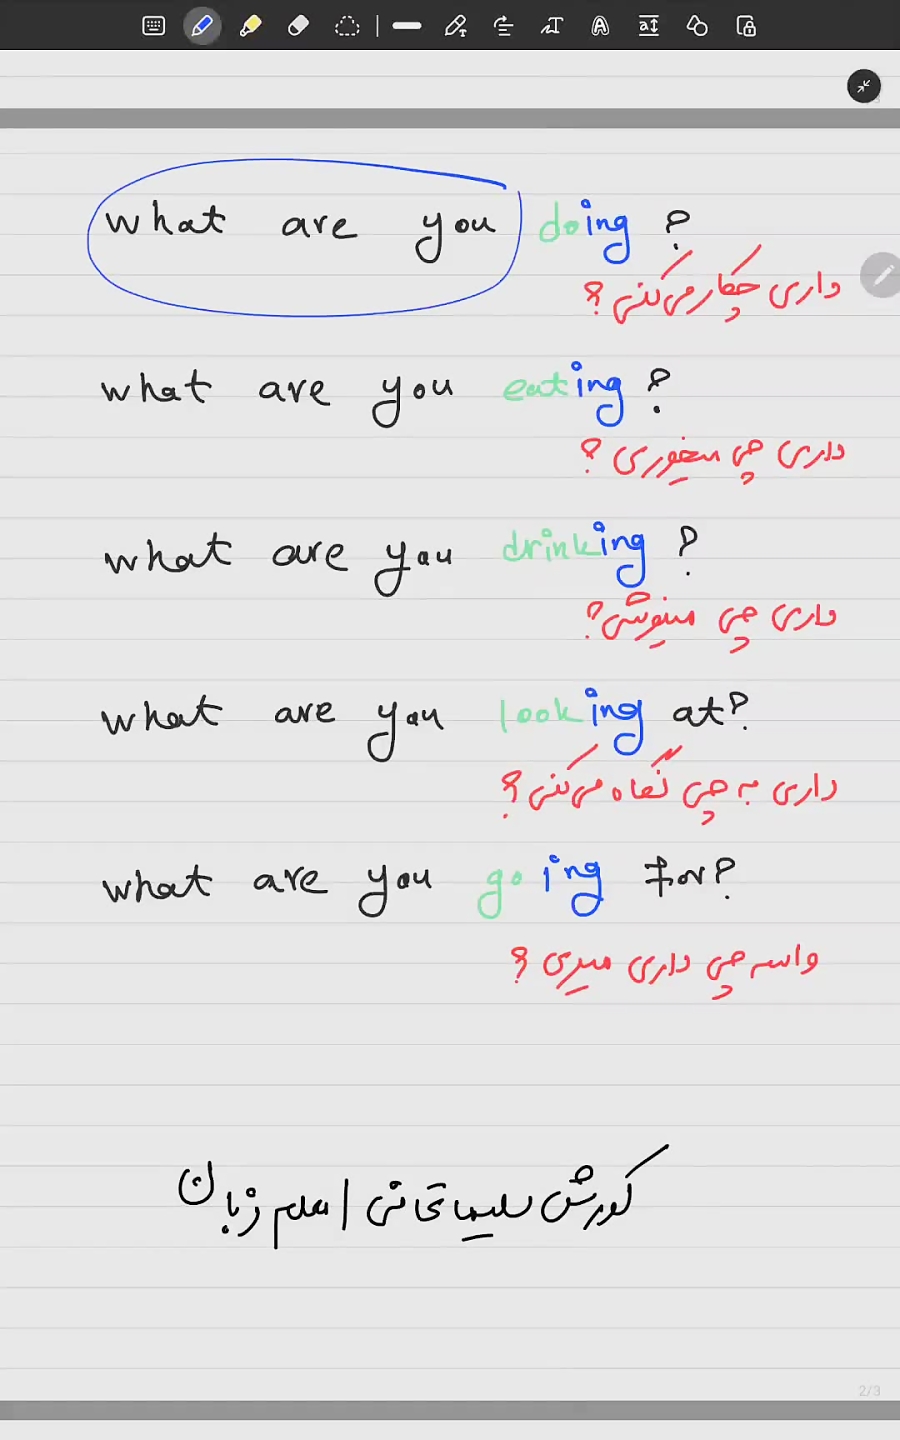 what are you doing ?
داری چکار می‌کنی ؟
what are you eating ?
داری چی میخوری ؟
what are you drinking ?
داری چی مینوشی ؟
what are you looking at?
داری به چی نگاه می‌کنی ؟
what are you going for?
واسه چی داری میری ؟
کورش سلیمانخانی | معلم زبان
2/3